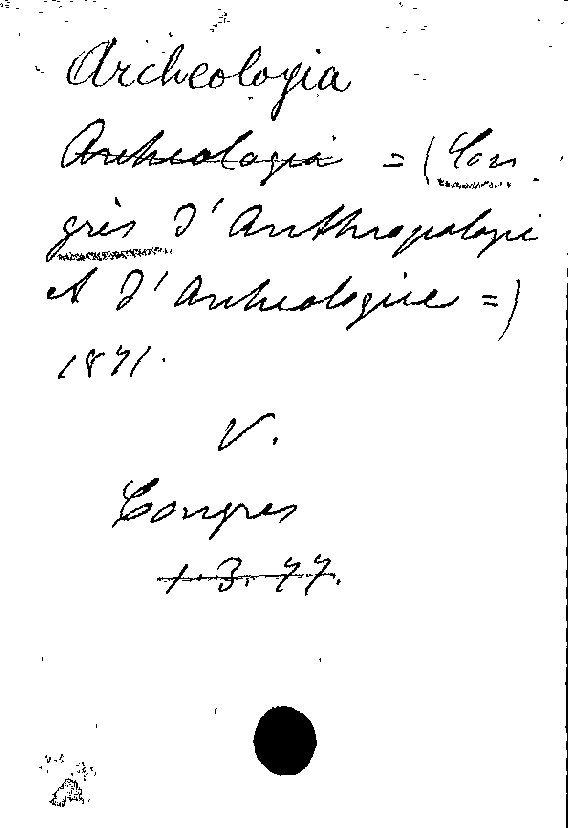 Archeologia
Archeologia = (Con
grès d'Anthropologi
et d'Archeologie =)
1871.
V.
Congres
1.3.77.